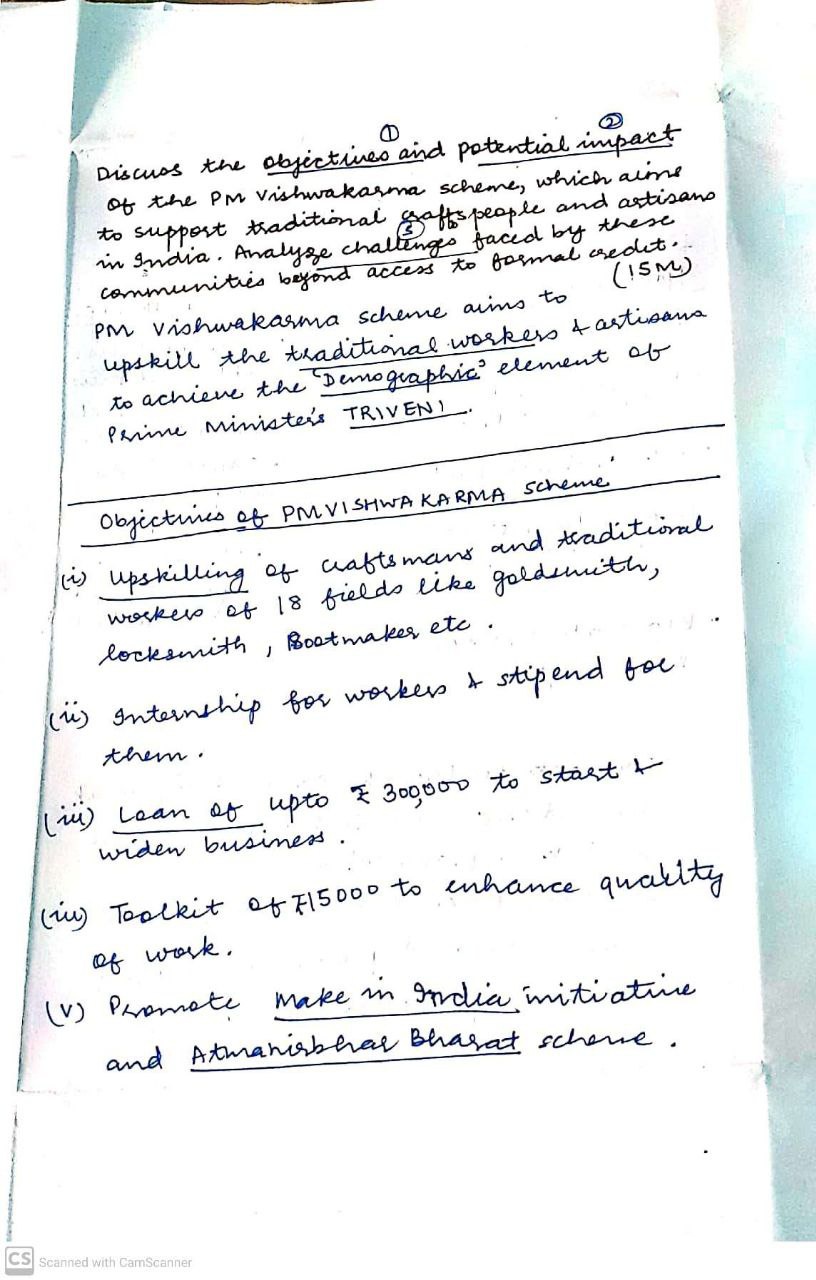 ① ②
Discuss the objectives and potential impact
of the PM Vishwakarma scheme, which aims
to support traditional craftspeople and artisans
in India. Analyze challenges faced by these
communities beyond access to formal credit.
(15M)
PM Vishwakarma scheme aims to
upskill the traditional workers & artisans
to achieve the "Demographic" element of
Prime Minister's TRIVENI.
Objectives of PM VISHWAKARMA Scheme
(i) Upskilling of craftsmans and traditional
workers of 18 fields like goldsmith,
locksmith, Bootmaker etc.
(ii) Internship for workers & stipend for
them.
(iii) Loan of upto ₹ 300,000 to start &
widen business.
(iv) Toolkit of ₹15000 to enhance quality
of work.
(v) Promote Make in India initiative
and Atmanirbhar Bharat scheme.
CS Scanned with CamScanner